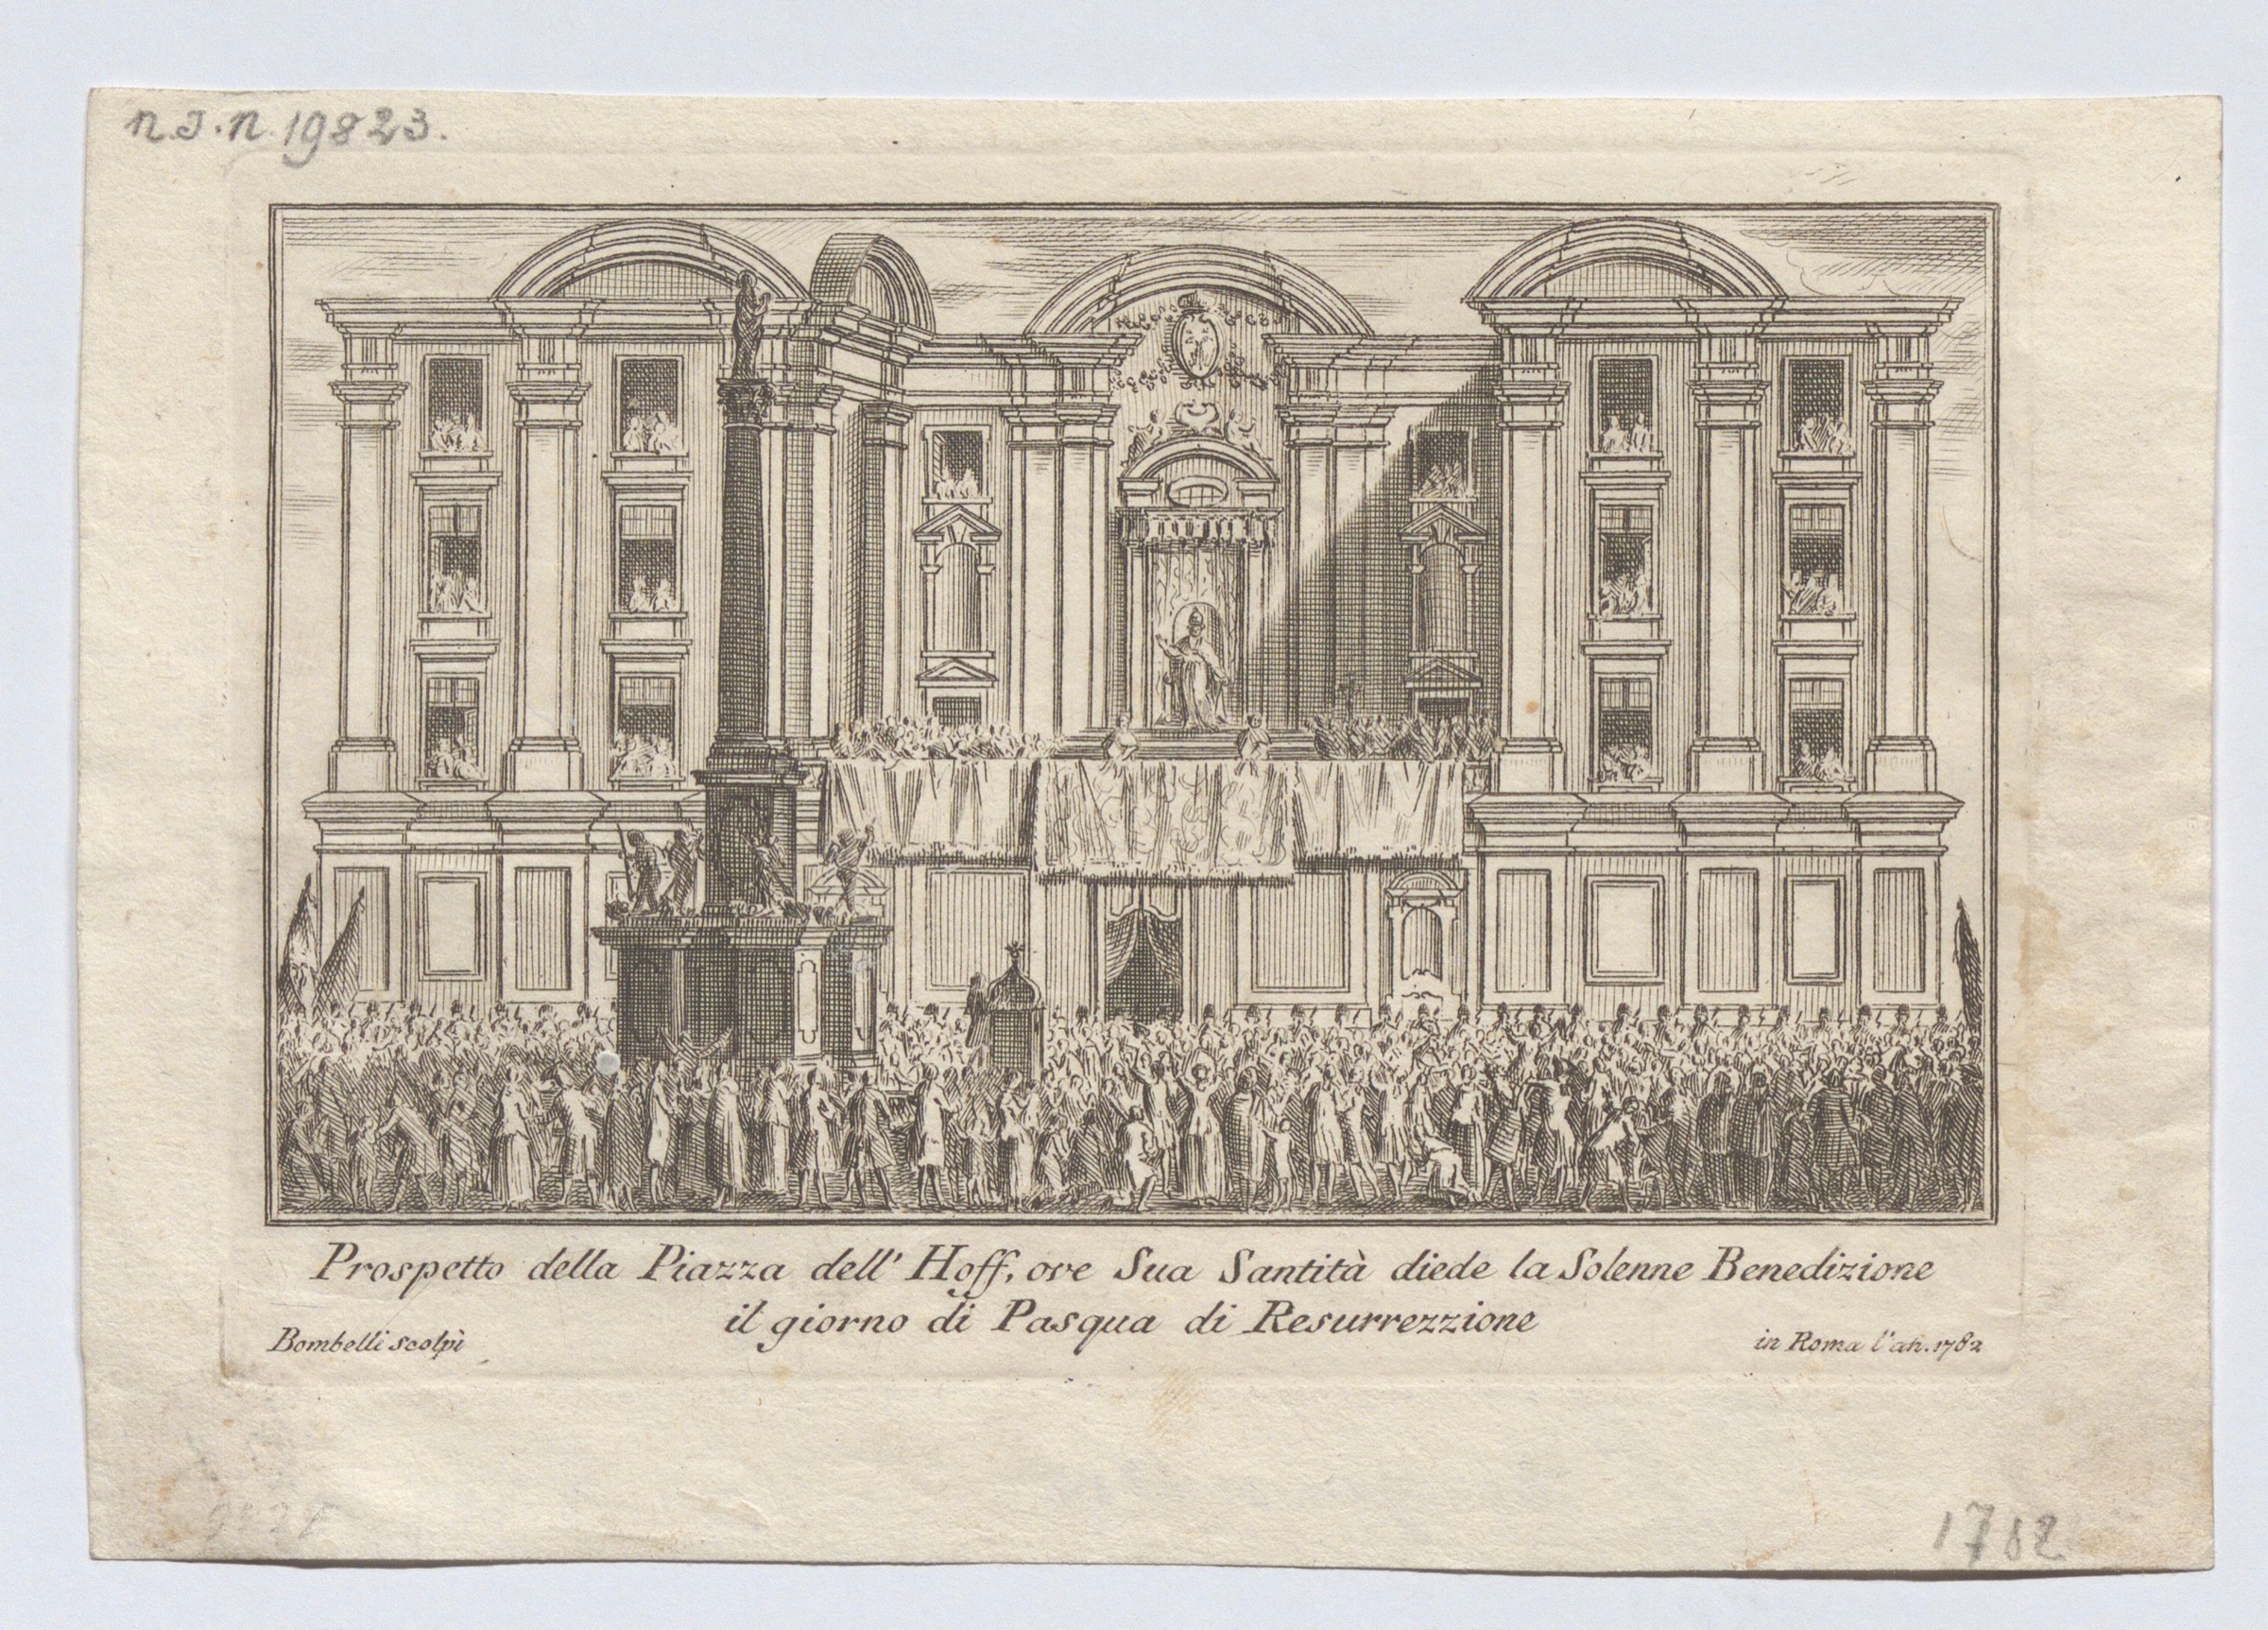 n.J.n. 19823.
Prospetto della Piazza dell' Hoff, ove Sua Santità diede la Solenne Benedizione
il giorno di Pasqua di Resurrezzione
Bombelli scolpì
in Roma l'an. 1782
1782